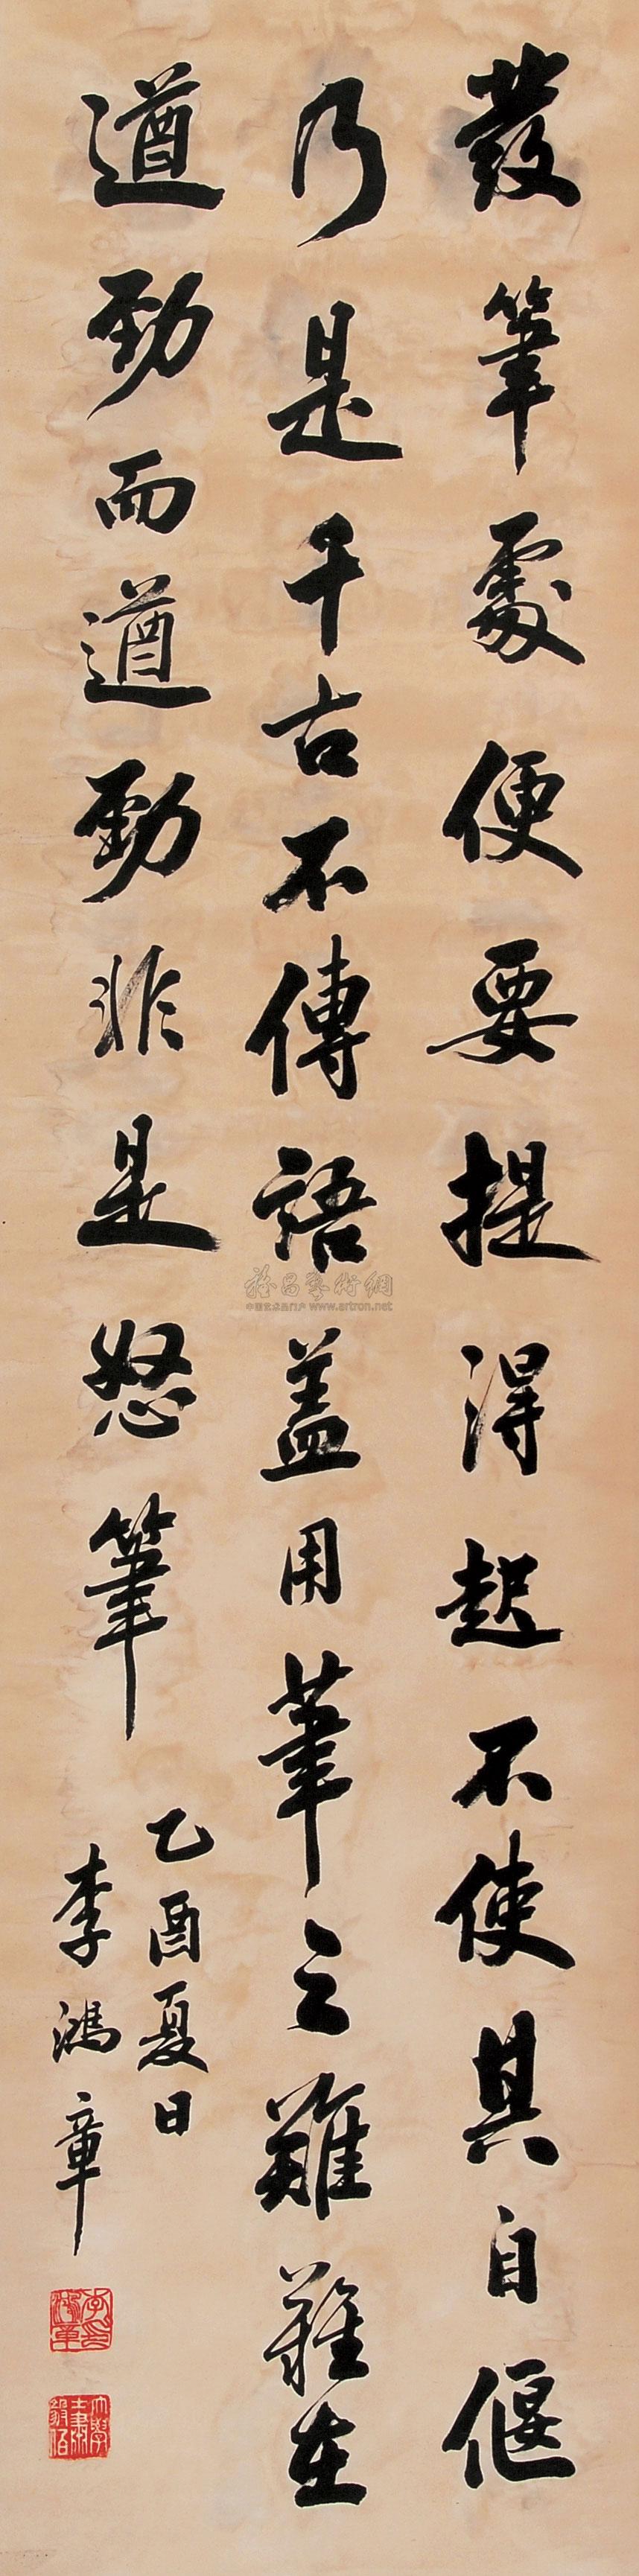 發筆處便要提得起不使其自偃
乃是千古不傳語蓋用筆之難難在
遒勁而遒勁非是怒筆
乙酉夏日
李鴻章
中国艺术品门户 www.artron.net